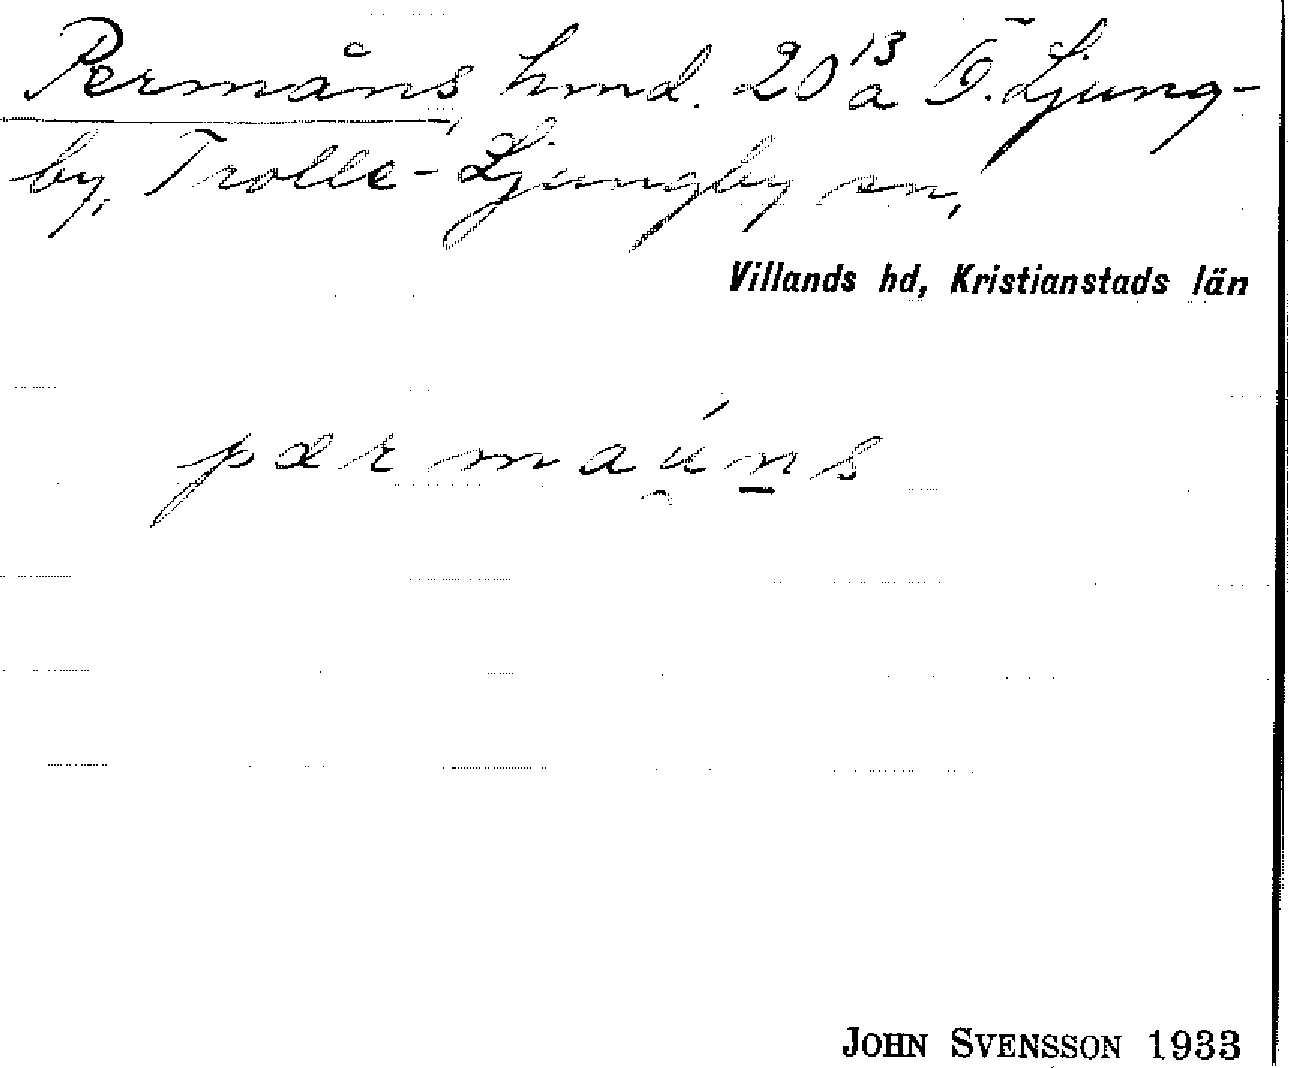 Permåns, hmd. 20¹³a T. Ljung-
by, Trolle-Ljungby sn,
Villands hd, Kristianstads län
pærmaú̯n̲s
JOHN SVENSSON 1933